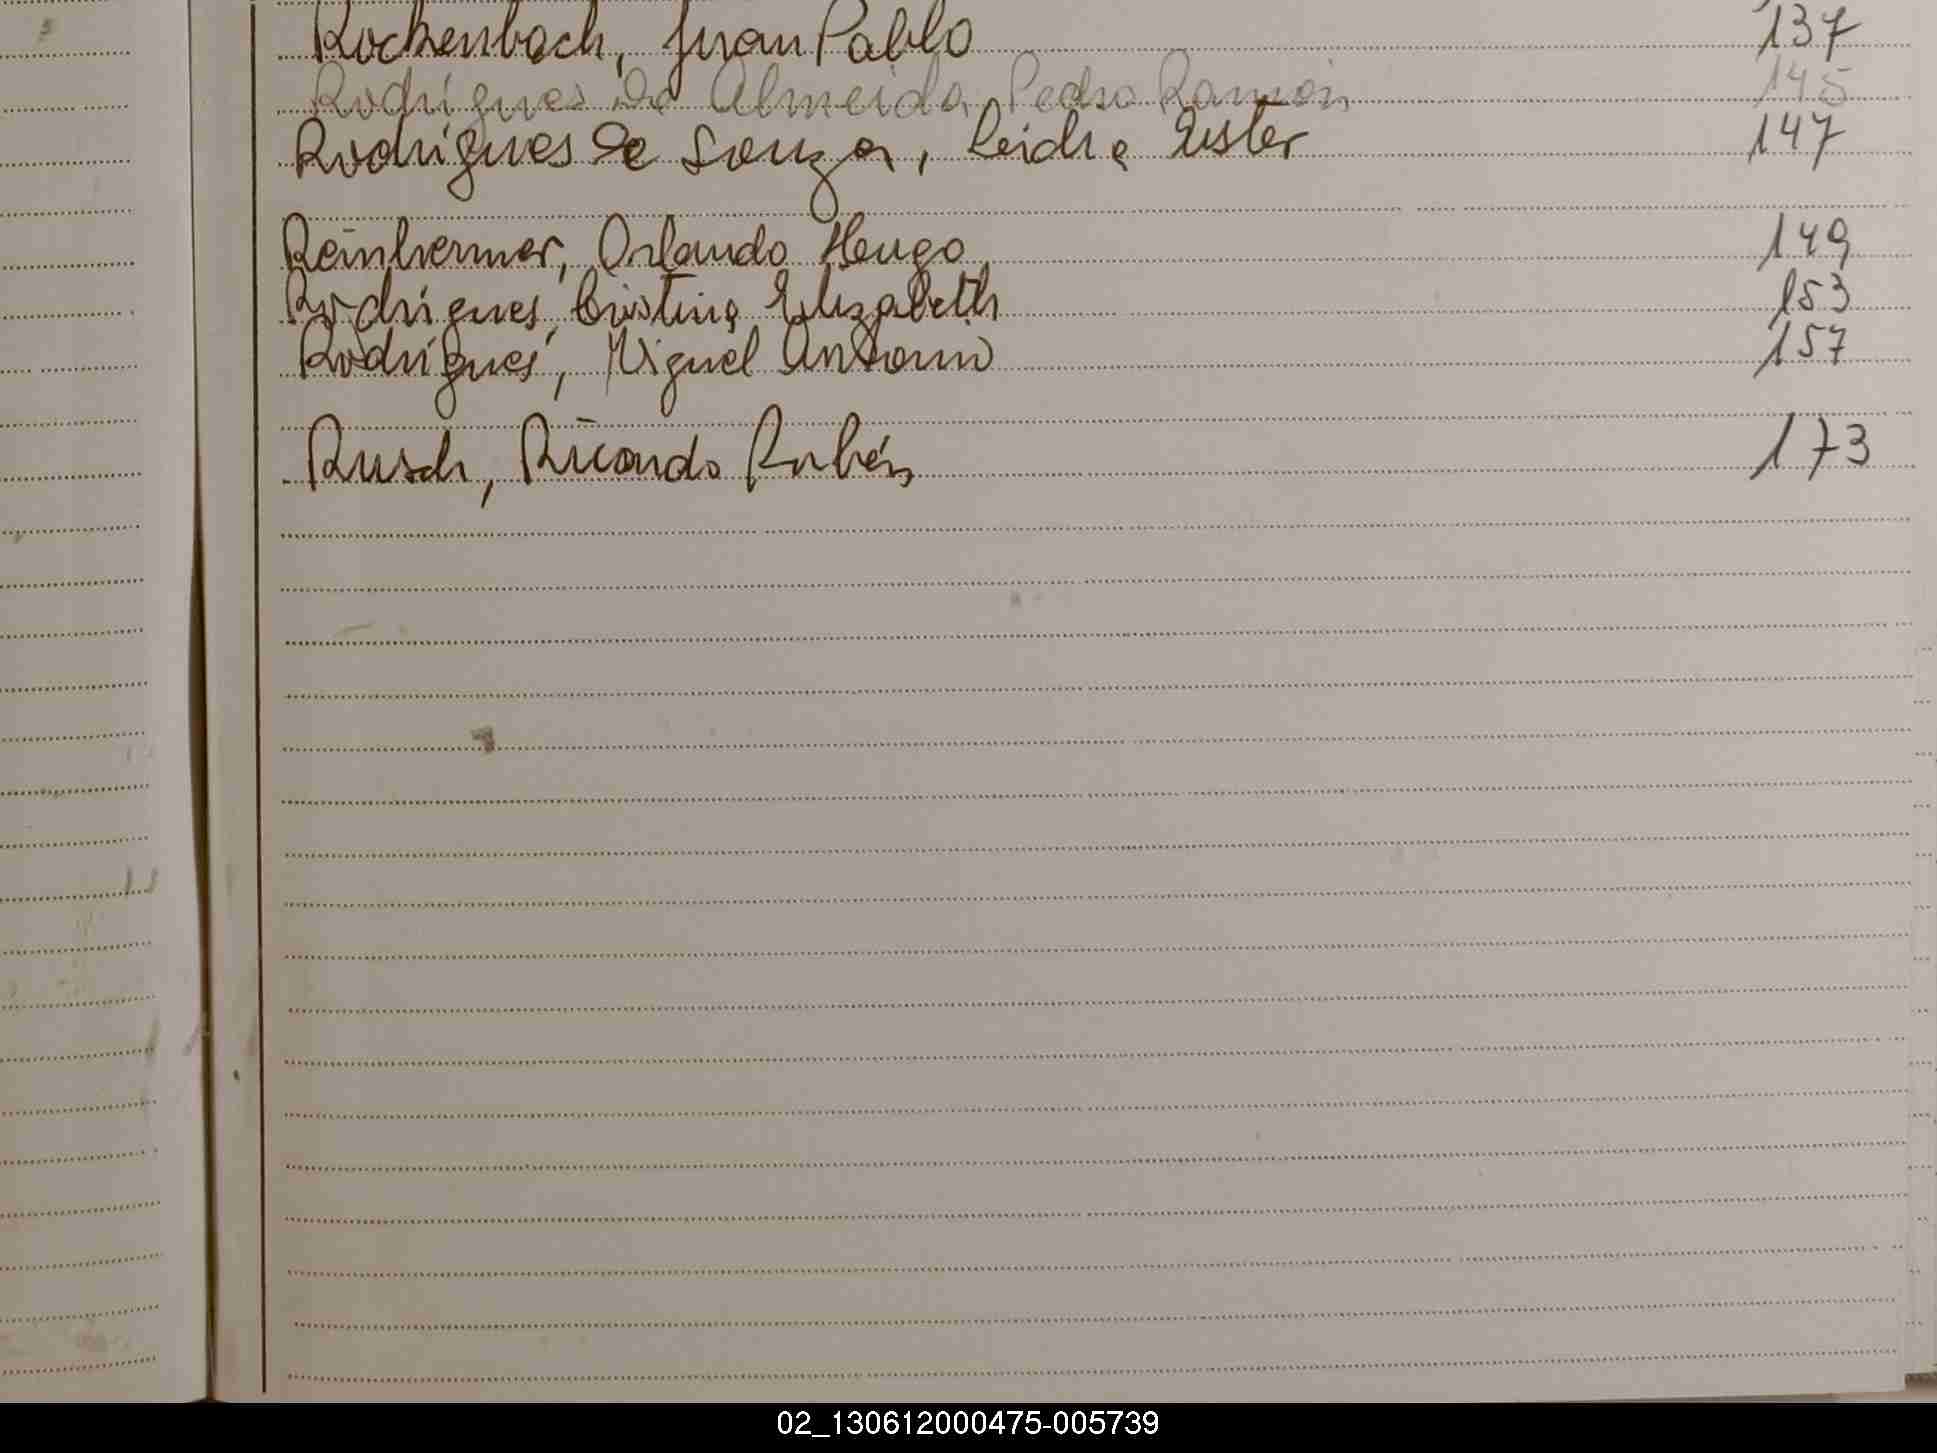 Rockenbach, Juan Pablo 137
Rodrigues De Almeida Pedro Ramón 145
Rodrigues De Souza, Leidia Ester 147
Reinhermer, Orlando Hugo 149
Rodrigues, Cristina Elizabeth 153
Rodrigues, Miguel Antonio 157
Rusch, Ricardo Rubén 173
02_130612000475-005739